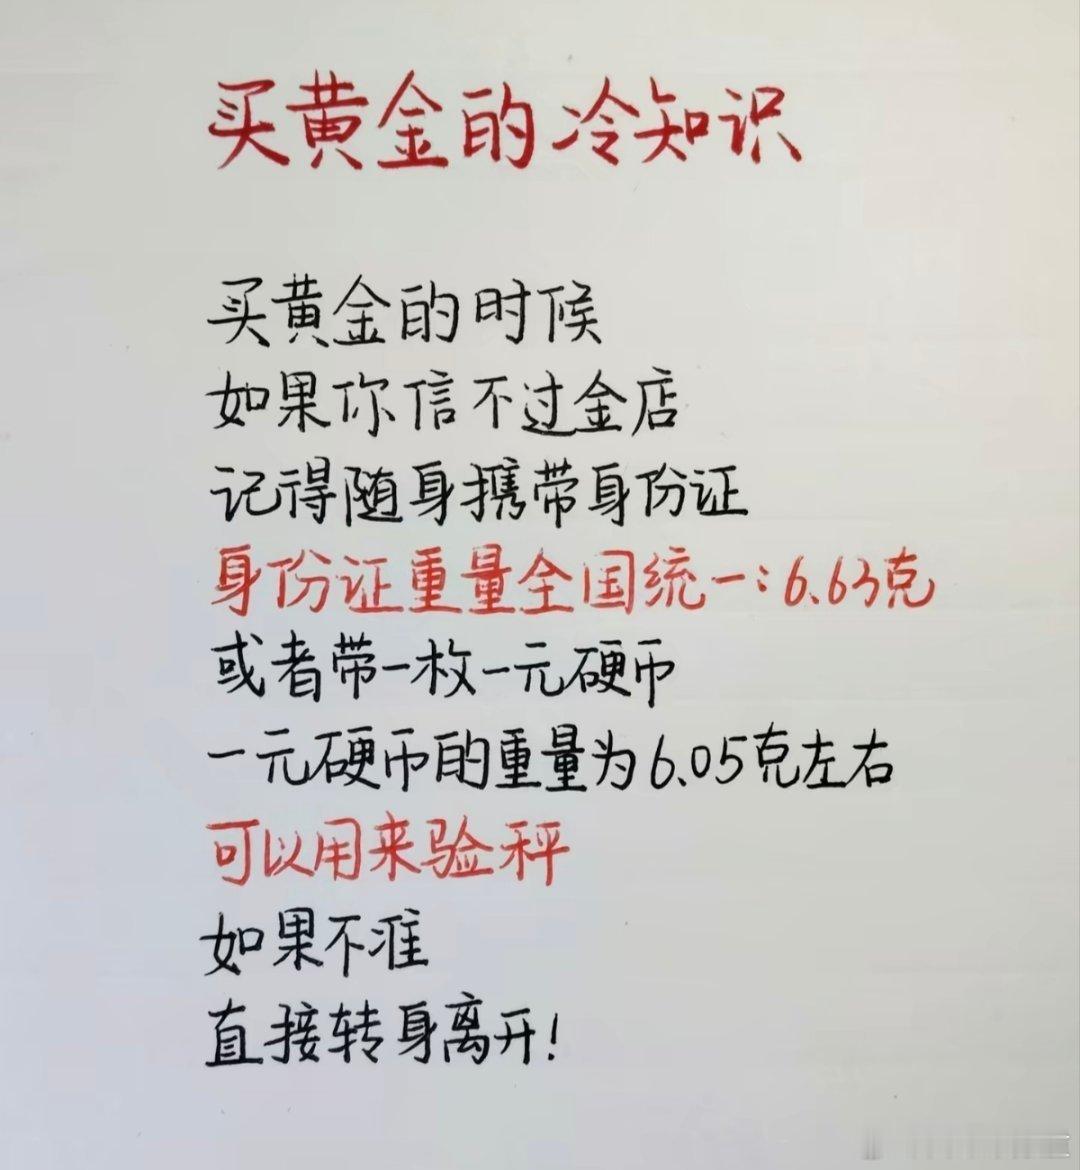 买黄金的冷知识
买黄金的时候
如果你信不过金店
记得随身携带身份证
身份证重量全国统一：6.63克
或者带一枚一元硬币
一元硬币的重量为6.05克左右
可以用来验秤
如果不准
直接转身离开！